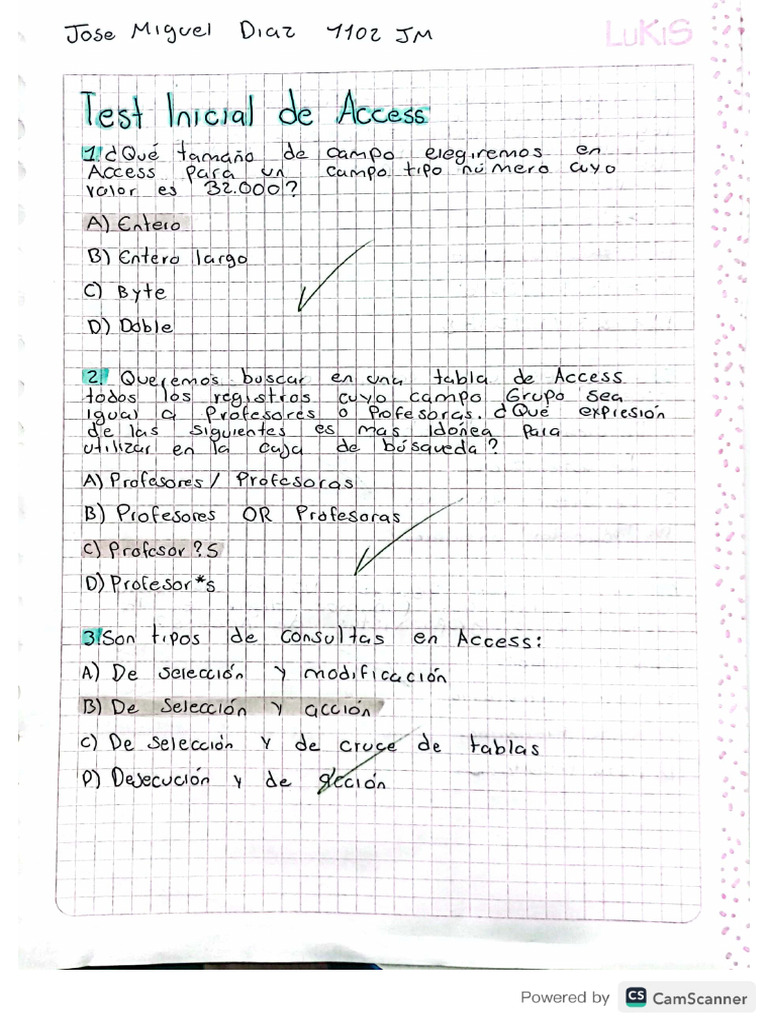 Jose Miguel Diaz 1102 JM
LUKIS
Test Inicial de Access
1. ¿Qué tamaño de campo elegiremos en
Access para un campo tipo número cuyo
valor es 32.000?
A) Entero
B) Entero largo
C) Byte
D) Doble
2. Queremos buscar en una tabla de Access
todos los registros cuyo campo Grupo sea
igual a Profesores o Profesoras. ¿Qué expresión
de las siguientes es mas Idónea para
utilizar en la caja de búsqueda?
A) Profesores / Profesoras
B) Profesores OR Profesoras
C) Profesor?s
D) Profesor*s
3. Son tipos de consultas en Access:
A) De selección y modificación
B) De Selección y acción
C) De selección y de cruce de tablas
D) Dejecución y de acción
Powered by CS CamScanner